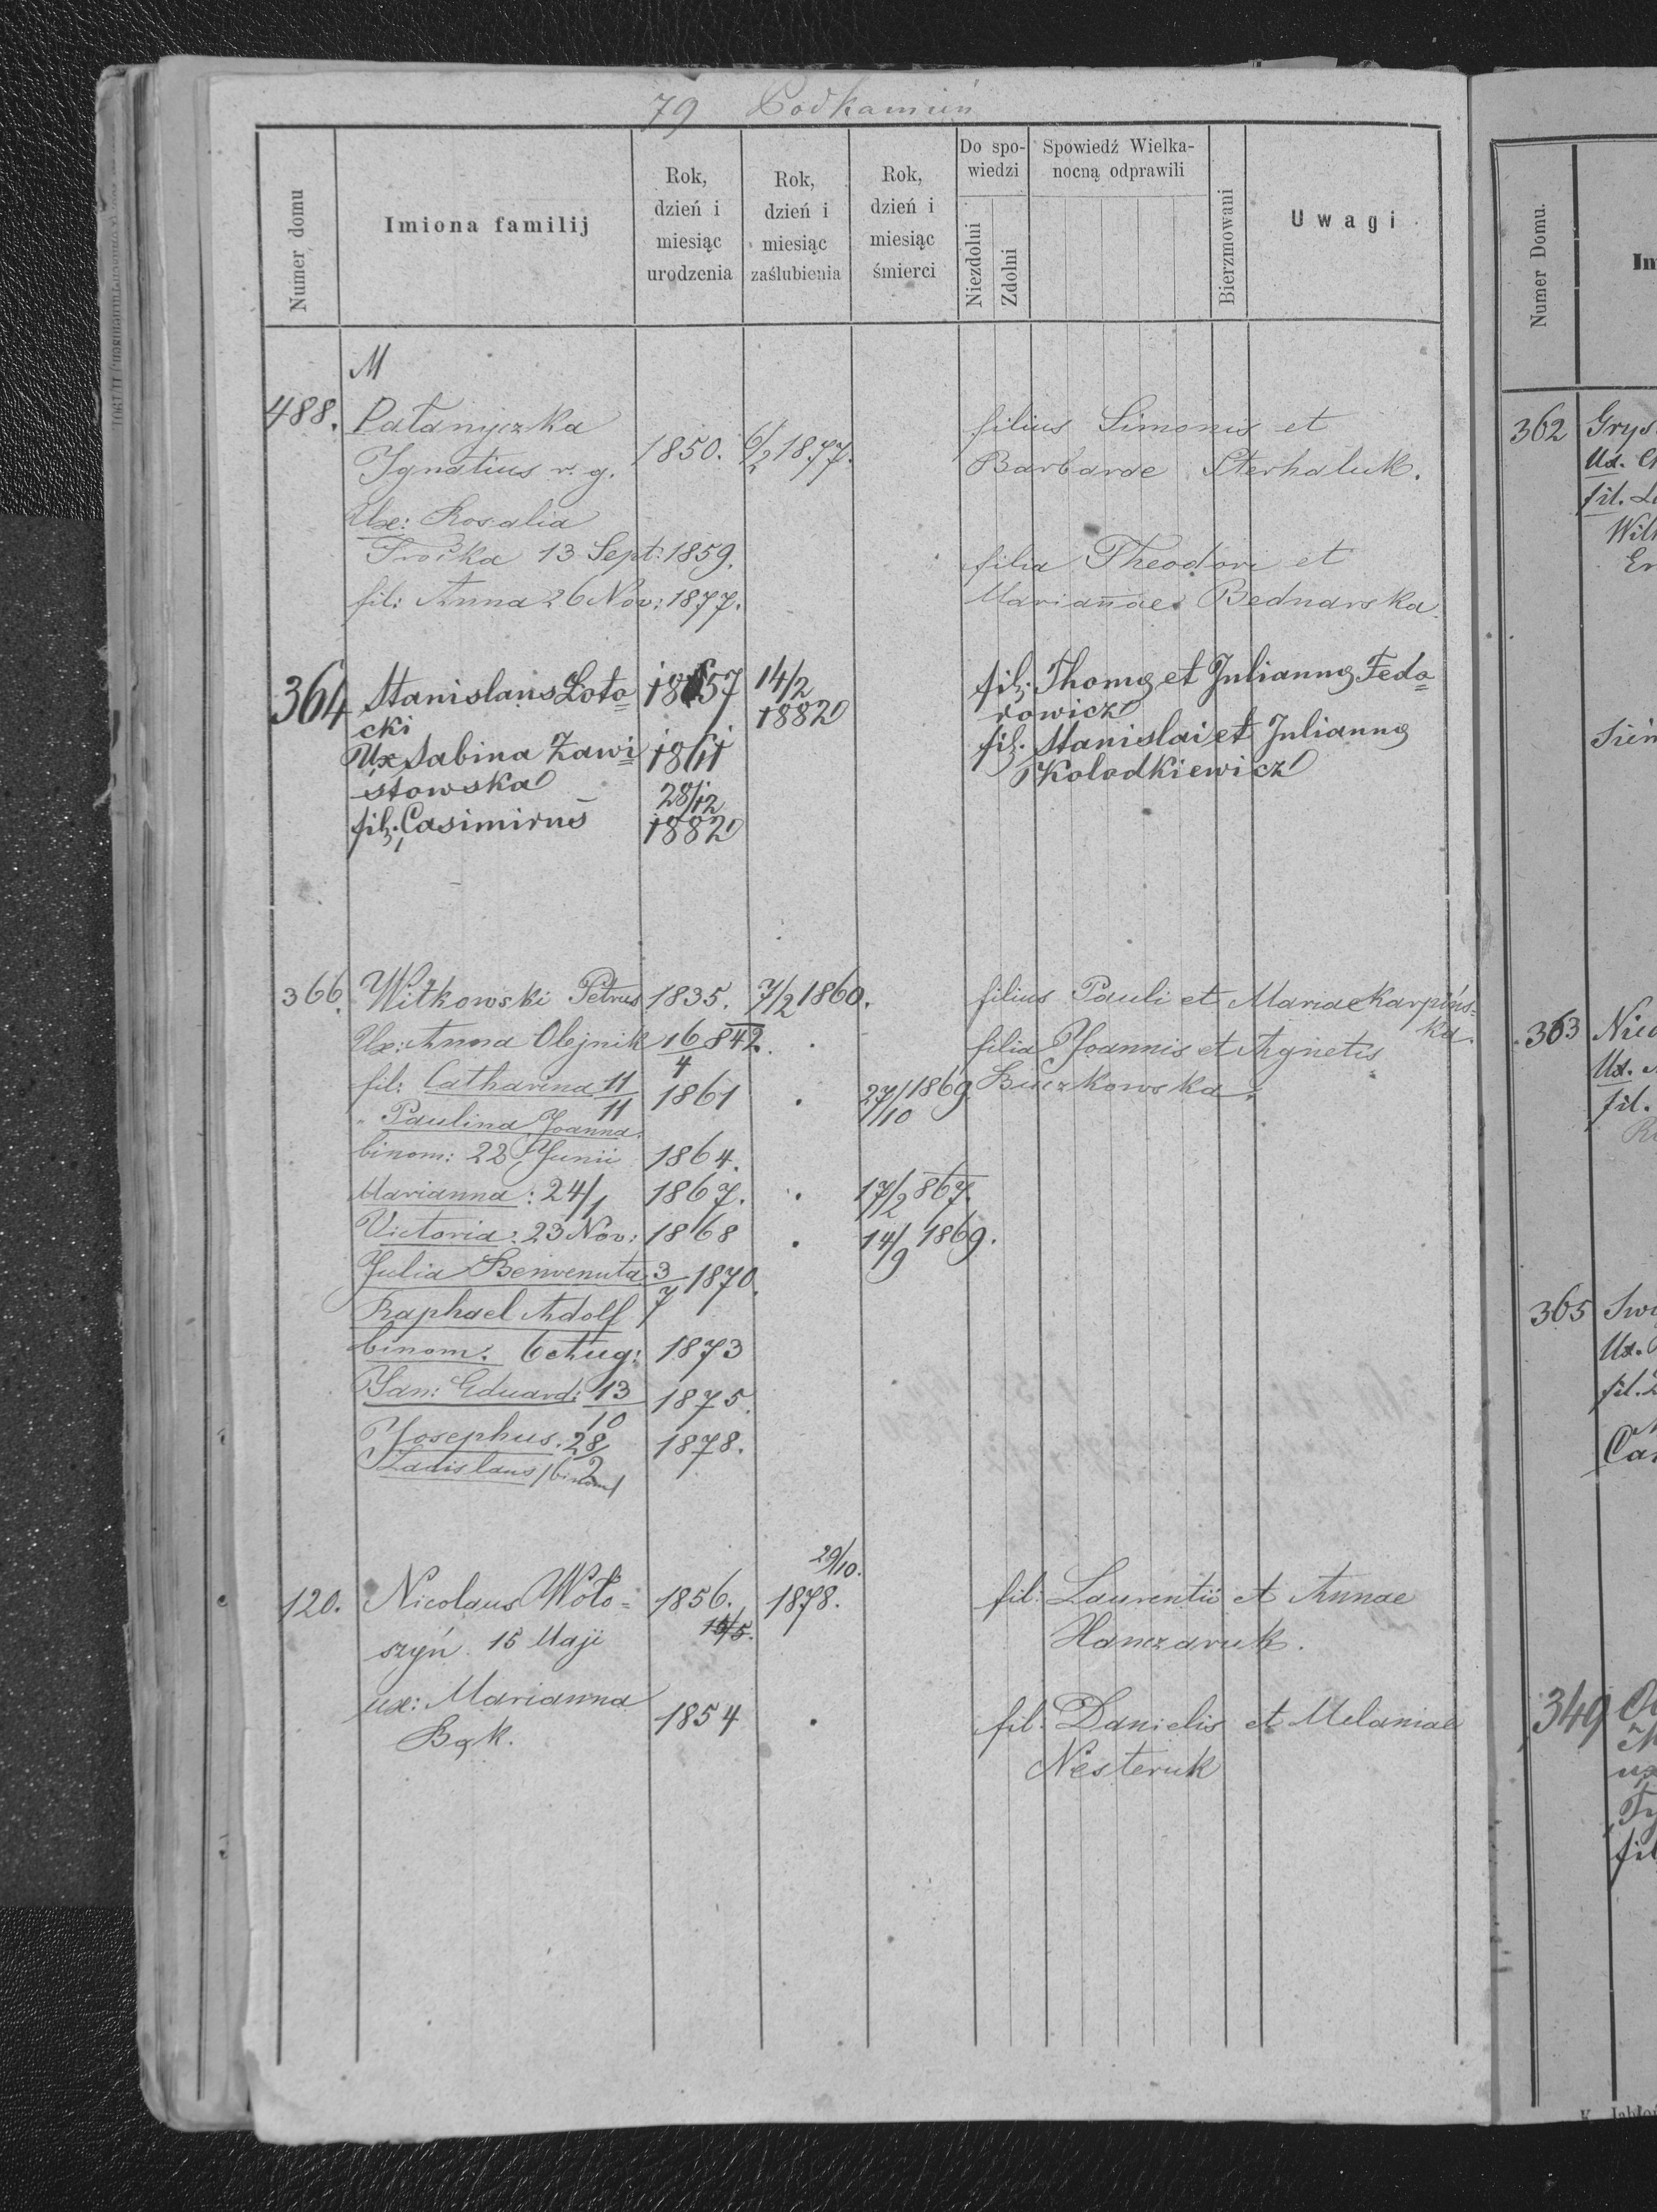 79 Podkamień
Numer domu
Imiona familij
Rok, dzień i miesiąc urodzenia
Rok, dzień i miesiąc zaślubienia
Rok, dzień i miesiąc śmierci
Do spowiedzi
Niezdolni
Zdolni
Spowiedź Wielkanocną odprawili
Bierzmowani
Uwagi
M
488. Patanyczka filius Simonis et
Ignatius r. g. 1850. 6/2 1877. Barbarae Sterhaluk.
Ux: Rosalia
Troćka 13 Sept: 1859. filia Theodori et
fil: Anna 26 Nov: 1877. Mariannae Bednarska.
364 Stanislaus Łoto= 1857 14/2 fil. Thomę et Juliannę Fedo=
cki 1882 rowicz
Ux Sabina Zawi= 1861 fil. Stanislai et Juliannę
stowska 28/12 Kolodkiewicz
fil. Casimirus 1882
366. Witkowski Petrus 1835. 7/2 1860. filius Pauli et Mariae Karpińs=
ka.
Ux: Anna Olejnik 16/4 842. filia Joannis et Agnetis
fil: Catharina 11/11 1861 . 27/10 1869 Buczkowska.
" Paulina Joanna
binom: 22 Junii 1864.
Marianna: 24/1 1867. . 17/2 867.
Victoria: 23 Nov: 1868 . 14/9 1869.
Julia Benvenuta 3/7 1870.
Raphael Adolf
binom. 6 Aug: 1873
Jan: Eduard: 13/10 1875.
Josephus. 28/2 1878.
Ladislaus /binom/
29/10.
120. Nicolaus Woło= 1856. 1878. fil: Laurentii et Annae
szyń. 15 Maji 15/5. Hanczaruk.
ux: Marianna 1854 . fil. Danielis et Melaniae
Bąk. Nesteruk
Numer Domu.
362 Grys
Ux.
fil.
363
Ux.
fil.
365
Ux.
fil.
349
ux
fil